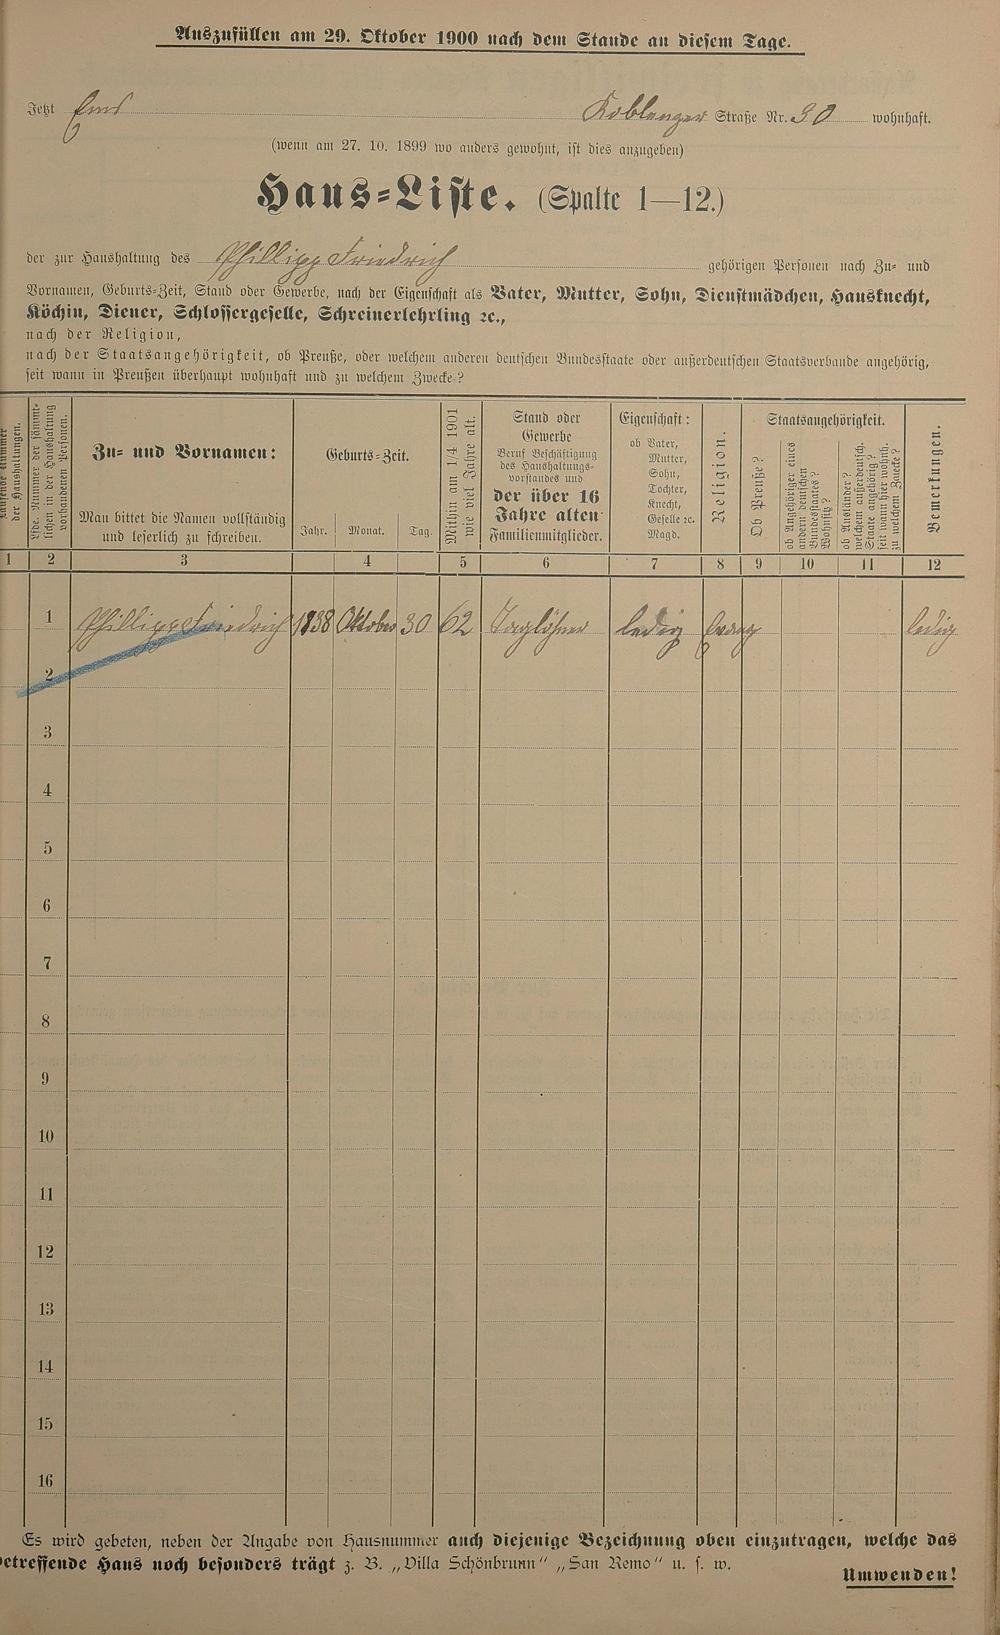 Auszufüllen am 29. Oktober 1900 nach dem Stande an diesem Tage.
Jetzt Ems Koblenzer Straße Nr. 30 wohnhaft.
(wenn am 27. 10. 1899 wo anders gewohnt, ist dies anzugeben)
Haus-Liste. (Spalte 1—12.)
der zur Haushaltung des Phillipp Friedrich gehörigen Personen nach Zu- und
Vornamen, Geburts-Zeit, Stand oder Gewerbe, nach der Eigenschaft als Vater, Mutter, Sohn, Dienstmädchen, Hausknecht,
Köchin, Diener, Schlossergeselle, Schreinerlehrling ꝛc.,
nach der Religion,
nach der Staatsangehörigkeit, ob Preuße, oder welchem anderen deutschen Bundesstaate oder außerdeutschen Staatsverbande angehörig,
seit wann in Preußen überhaupt wohnhaft und zu welchem Zwecke?
Laufende Nummer
der Haushaltungen.
Lfde. Nummer der sämmt-
lichen in der Haushaltung
vorhandenen Personen.
Zu- und Vornamen:
Man bittet die Namen vollständig
und leserlich zu schreiben.
Geburts-Zeit.
Jahr. Monat. Tag.
Mithin am 1/4 1901
wie viel Jahre alt.
Stand oder
Gewerbe
Beruf Beschäftigung
des Haushaltungs-
vorstandes und
der über 16
Jahre alten
Familienmitglieder.
Eigenschaft:
ob Vater,
Mutter,
Sohn,
Tochter,
Knecht,
Geselle ꝛc.
Magd.
Religion.
Staatsangehörigkeit.
Ob Preuße?
ob Angehöriger eines
andern deutschen
Bundesstaates?
Wohnsitz?
ob Ausländer?
welchem außerdeutsch.
Staate angehörig?
seit wann hier wohnh.
zu welchem Zwecke?
Bemerkungen.
1 2 3 4 5 6 7 8 9 10 11 12
1 Phillipp Friedrich 1838 Oktober 30 62 Taglöhner ledig Evang ledig
2
3
4
5
6
7
8
9
10
11
12
13
14
15
16
Es wird gebeten, neben der Angabe von Hausnummer auch diejenige Bezeichnung oben einzutragen, welche das
betreffende Haus noch besonders trägt z. B. „Villa Schönbrunn“ „San Remo“ u. s. w.
Umwenden!